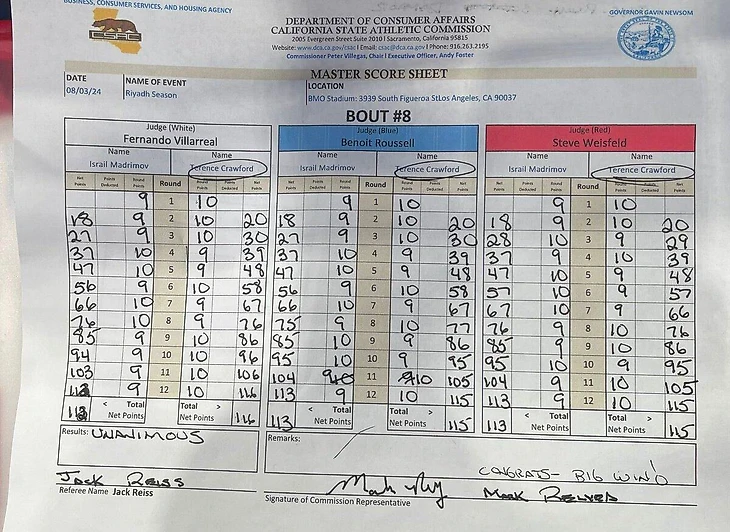 BUSINESS, CONSUMER SERVICES, AND HOUSING AGENCY
GOVERNOR GAVIN NEWSOM
DEPARTMENT OF CONSUMER AFFAIRS
CALIFORNIA STATE ATHLETIC COMMISSION
2005 Evergreen Street Suite 2010 | Sacramento, California 95815
Website: www.dca.ca.gov/csac | Email: csac@dca.ca.gov | Phone: 916.263.2195
Commissioner Peter Villegas, Chair | Executive Officer, Andy Foster
MASTER SCORE SHEET
DATE NAME OF EVENT LOCATION
08/03/24 Riyadh Season BMO Stadium: 3939 South Figueroa StLos Angeles, CA 90037
BOUT #8
Judge (White) Judge (Blue) Judge (Red)
Fernando Villarreal Benoit Roussell Steve Weisfeld
Name Name Name Name Name Name
Israil Madrimov Terence Crawford Israil Madrimov Terence Crawford Israil Madrimov Terence Crawford
Net Points Points Deducted Round Points Round Round Points Points Deducted Net Points Net Points Points Deducted Round Points Round Round Points Points Deducted Net Points Net Points Points Deducted Round Points Round Round Points Points Deducted Net Points
9 1 10 9 1 10 9 1 10
18 9 2 10 20 18 9 2 10 20 18 9 2 10 20
27 9 3 10 30 27 9 3 10 30 28 10 3 9 29
37 10 4 9 39 37 10 4 9 39 37 9 4 10 39
47 10 5 9 48 47 10 5 9 48 47 10 5 9 48
56 9 6 10 58 56 9 6 10 58 57 10 6 9 57
66 10 7 9 67 66 10 7 9 67 67 10 7 9 66
76 10 8 9 76 75 9 8 10 77 76 9 8 10 76
85 9 9 10 86 85 10 9 9 86 85 9 9 10 86
94 9 10 10 96 95 10 10 9 95 95 10 10 9 95
103 9 11 10 106 104 9 11 10 105 104 9 11 10 105
112 9 12 10 116 113 9 12 10 115 113 9 12 10 115
< Total > < Total > < Total >
Net Points 116 113 Net Points 115 113 Net Points 115
Results: UNANIMOUS Remarks:
CONGRATS- BIG WIN!
Jack Reiss
Referee Name Jack Reiss
Signature of Commission Representative